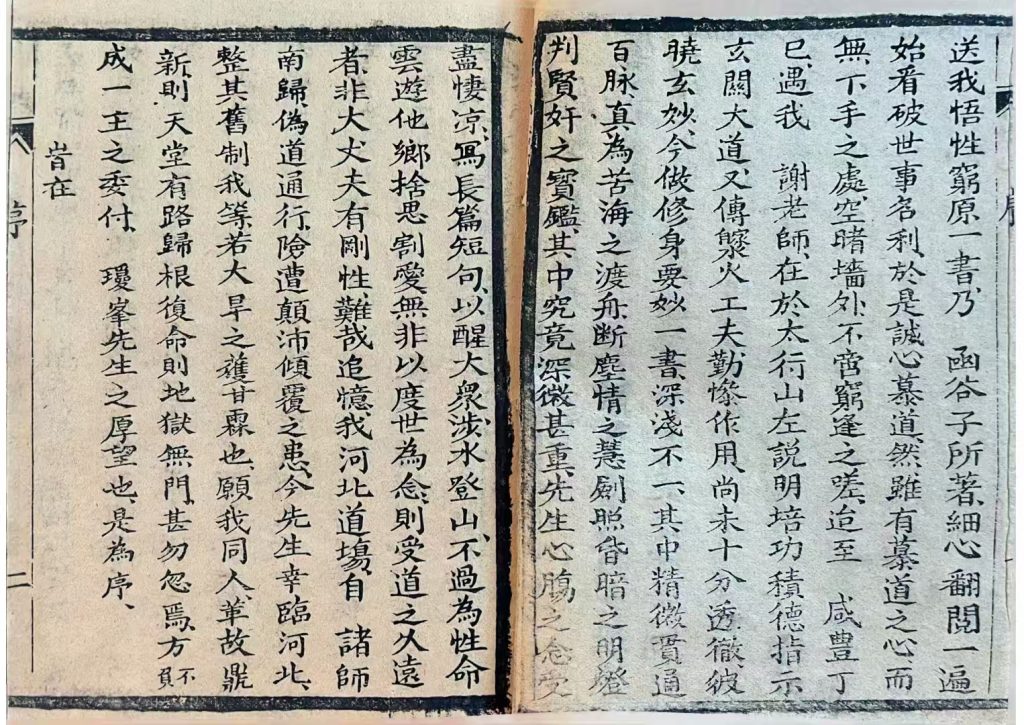 送我悟性窮原一書乃、 函谷子所著、細心翻閱一遍
始看破世事名利、於是誠心慕道、然雖有慕道之心、而
無下手之處、空睹墻外、不啻窮逢之嗟、迨至 咸豐丁
巳、遇我 謝老師、在於太行山左說明培功積德指示
玄關大道、又傳火工夫勤作用、尚未十分透徹、彼
曉玄妙、今做修身要妙一書、深淺不一、其中精微貫通
百脉、真為苦海之渡舟、斷塵情之慧劍、照昏暗之明燈
判賢奸之寶鑑、其中究竟深微甚重、先生心腸之念受
盡悽凉、寫長篇短句、以醒大衆、涉水登山、不過為性命
雲遊他鄉、捨恩割愛、無非以度世為念、則受道之久遠
者、非大丈夫有剛性、難哉、追憶、我河北道塲、自 諸師
南歸、偽道通行、險遭顛沛傾覆之患、今先生幸臨河北、
整其舊制、我等若大旱之獲甘霖也、願我同人、革故鼎
新、則天堂有路、歸根復命、則地獄無門、甚勿忽焉、方不負
成一主之委付、 環峯先生之厚望也、是為序、
旹在
序
二